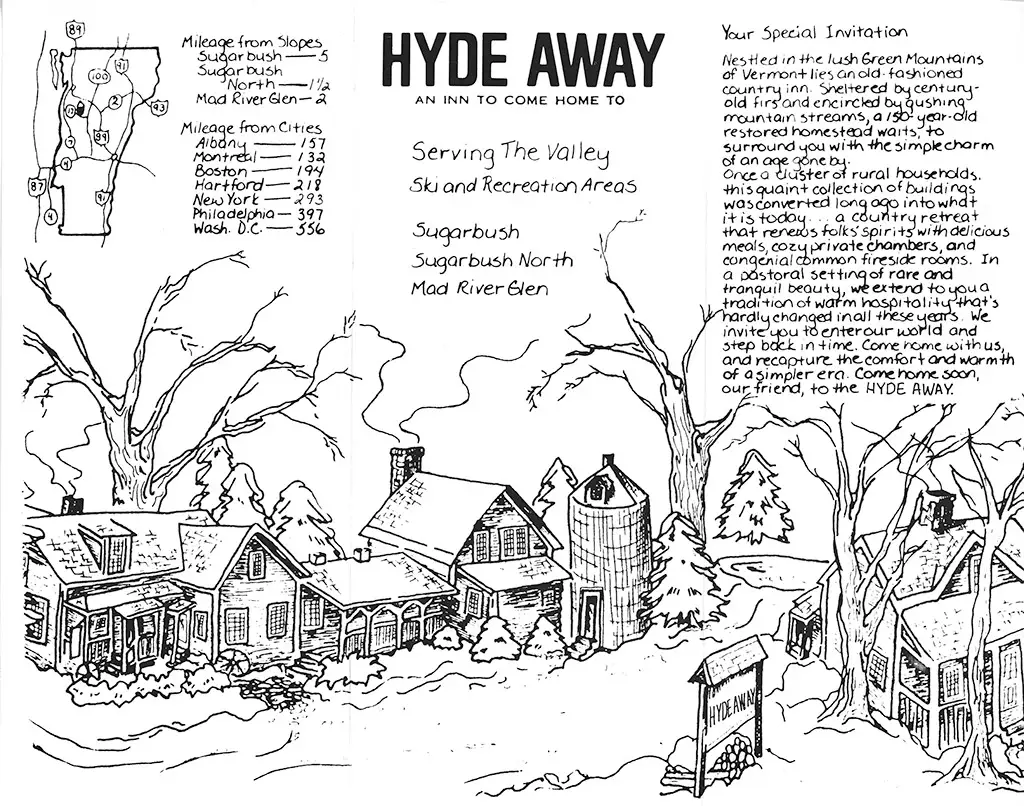 89
91
100
2
93
89
4
87
4
91
Mileage from Slopes
Sugarbush — 5
Sugarbush
North — 1½
Mad River Glen — 2
Mileage from Cities
Albany — 157
Montreal — 132
Boston — 194
Hartford — 218
New York — 293
Philadelphia — 397
Wash. D.C. — 556
HYDE AWAY
AN INN TO COME HOME TO
Serving The Valley
Ski and Recreation Areas
Sugarbush
Sugarbush North
Mad River Glen
Your Special Invitation
Nestled in the lush Green Mountains
of Vermont lies an old-fashioned
country inn. Sheltered by century-
old firs and encircled by gushing
mountain streams, a 150-year-old
restored homestead waits, to
surround you with the simple charm
of an age gone by.
Once a cluster of rural households,
this quaint collection of buildings
was converted long ago into what
it is today... a country retreat
that renews folks' spirits with delicious
meals, cozy private chambers, and
congenial common fireside rooms. In
a pastoral setting of rare and
tranquil beauty, we extend to you a
tradition of warm hospitality that's
hardly changed in all these years. We
invite you to enter our world and
step back in time. Come home with us,
and recapture the comfort and warmth
of a simpler era. Come home soon,
our friend, to the HYDE AWAY.
HYDE AWAY